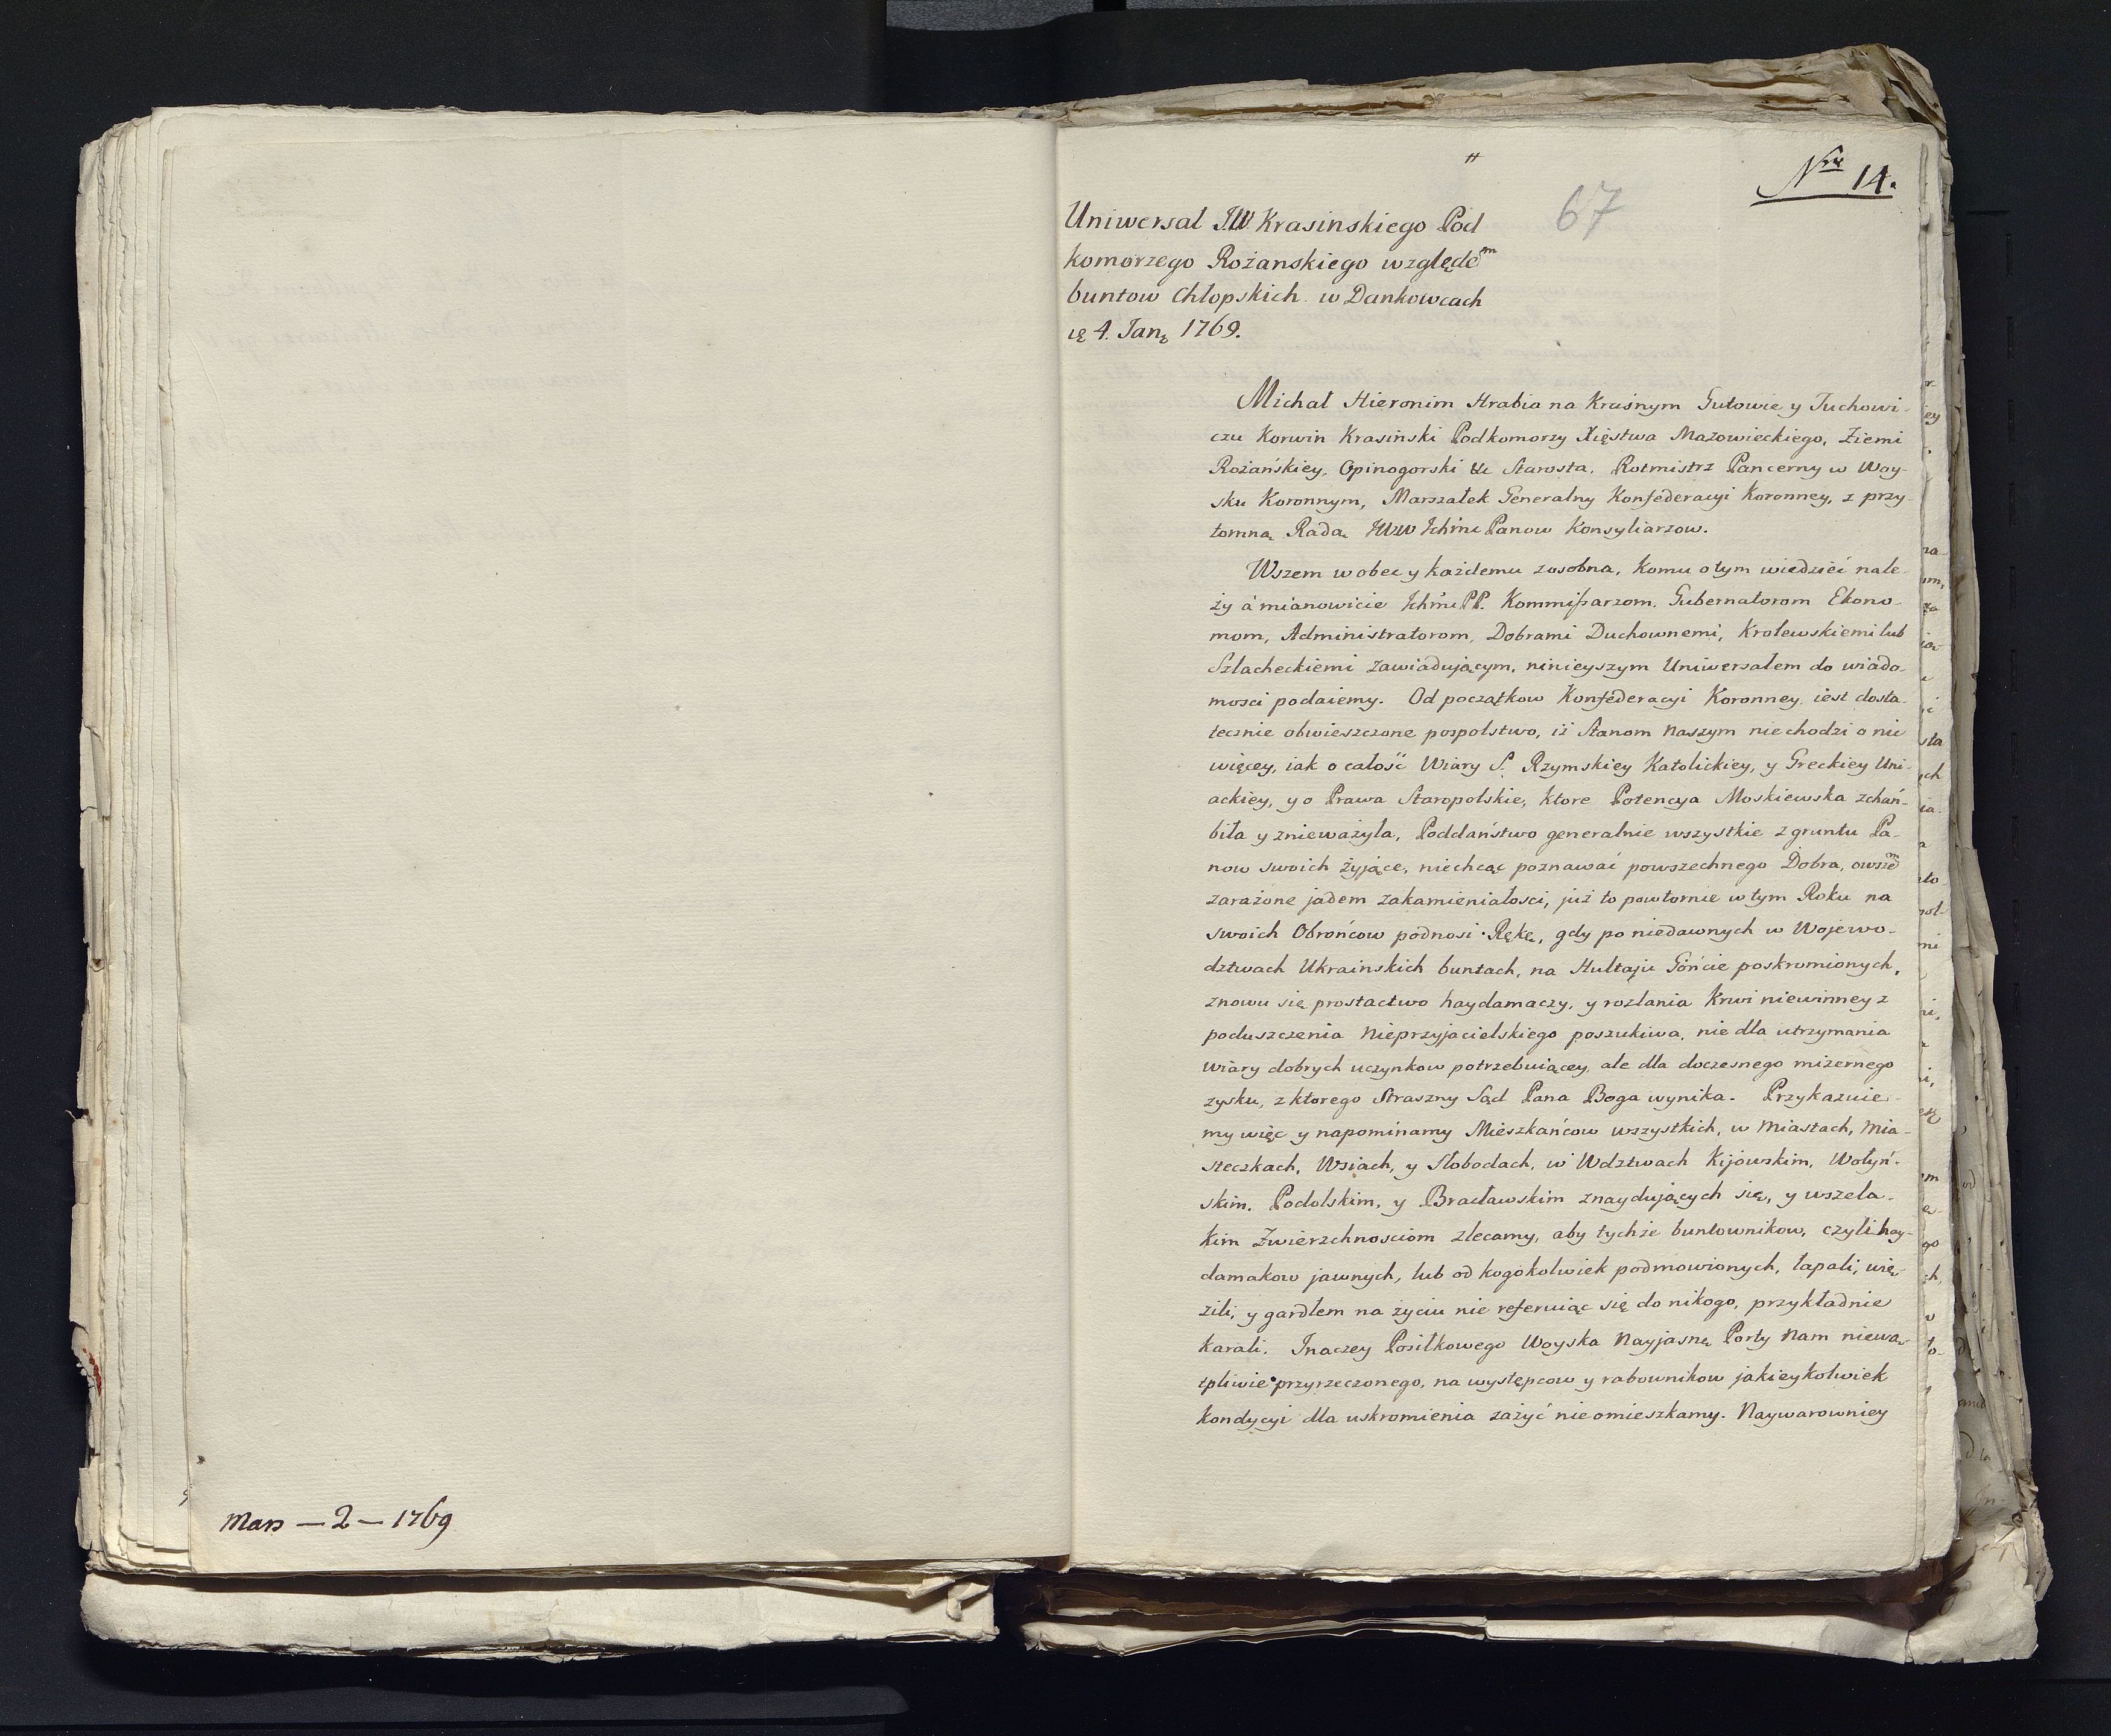 Mars — 2 — 1769
Nro 14.
67
Uniwersał J.W. Krasinskiego Pod
komorzego Rożanskiego względem
buntow Chłopskich w Dankowcach
4. Jan 1769.
Michał Hieronim Hrabia na Kraśnym Gutowie y Tuchowi-
czu Korwin Krasiński Podkomorzy Xięstwa Mazowieckiego, Ziemi
Rożańskiey, Opinogorski &c Starosta, Rotmistrz Pancerny w Woy-
sku Koronnym, Marszałek Generalny Konfederacyi Koronney, z przy-
tomną Radą JWW Ichmc Panow Konsyliarzow.
Wszem w obec y każdemu zosobna, komu o tym wiedzieć nale-
ży á mianowicie Ichmc PP. Kommißarzom, Gubernatorom Ekono-
mom, Administratorom, Dobrami Duchownemi, Krolewskiemi lub
Szlacheckiemi zawiadującym, ninieyszym Uniwersałem do wiado-
mosci podaiemy. Od początkow Konfederacyi Koronney iest dosta-
tecznie obwieszczone pospolstwo, iż Stanom naszym niechodzi o nic
więcey, iak o całość Wiary S. Rzymskiey Katolickiey, y Greckiey Uni-
ackiey, y o Prawa Staropolskie, ktore Potencya Moskiewska zchań-
biła y znieważyła, Poddaństwo generalnie wszystkie z gruntu Pa-
now swoich żyjące, niechcąc poznawać powszechnego Dobra, owszem
zarażone jadem zakamieniałosci, już to powtornie w tym Roku na
swoich Obrońcow podnosi Rękę, gdy po niedawnych w Wojewo-
dztwach Ukrainskich buntach, na Hultaju Gońcie poskromionych,
znowu się prostactwo haydamaczy, y rozlania Krwi niewinney z
poduszczenia Nieprzyjacielskiego poszukiwa, nie dla utrzymania
wiary dobrych uczynkow potrzebuiącey, ale dla doczesnego mizernego
zysku, z ktorego Straszny Sąd Pana Boga wynika. Przykazuie-
my więc y napominamy Mieszkańcow wszystkich, w Miastach, Mia-
steczkach, Wsiach, y Słobodach, w Wdztwach Kijowskim, Wołyń-
skim, Podolskim, y Bracławskim znaydujących się, y wszela-
kim Zwierzchnosciom zlecamy, aby tychże buntownikow, czyli hay-
damakow jawnych, lub od kogokolwiek podmowionych, łapali, wię-
zili, y gardłem na życiu nie referuiąc się do nikogo, przykładnie
karali. Inaczey Posiłkowego Woyska Nayjasnę Porty Nam niewą-
tpliwie przyrzeczonego, na występcow y rabownikow jakieykolwiek
kondycyi dla uskromienia zażyć nieomieszkamy. Naywarowniey